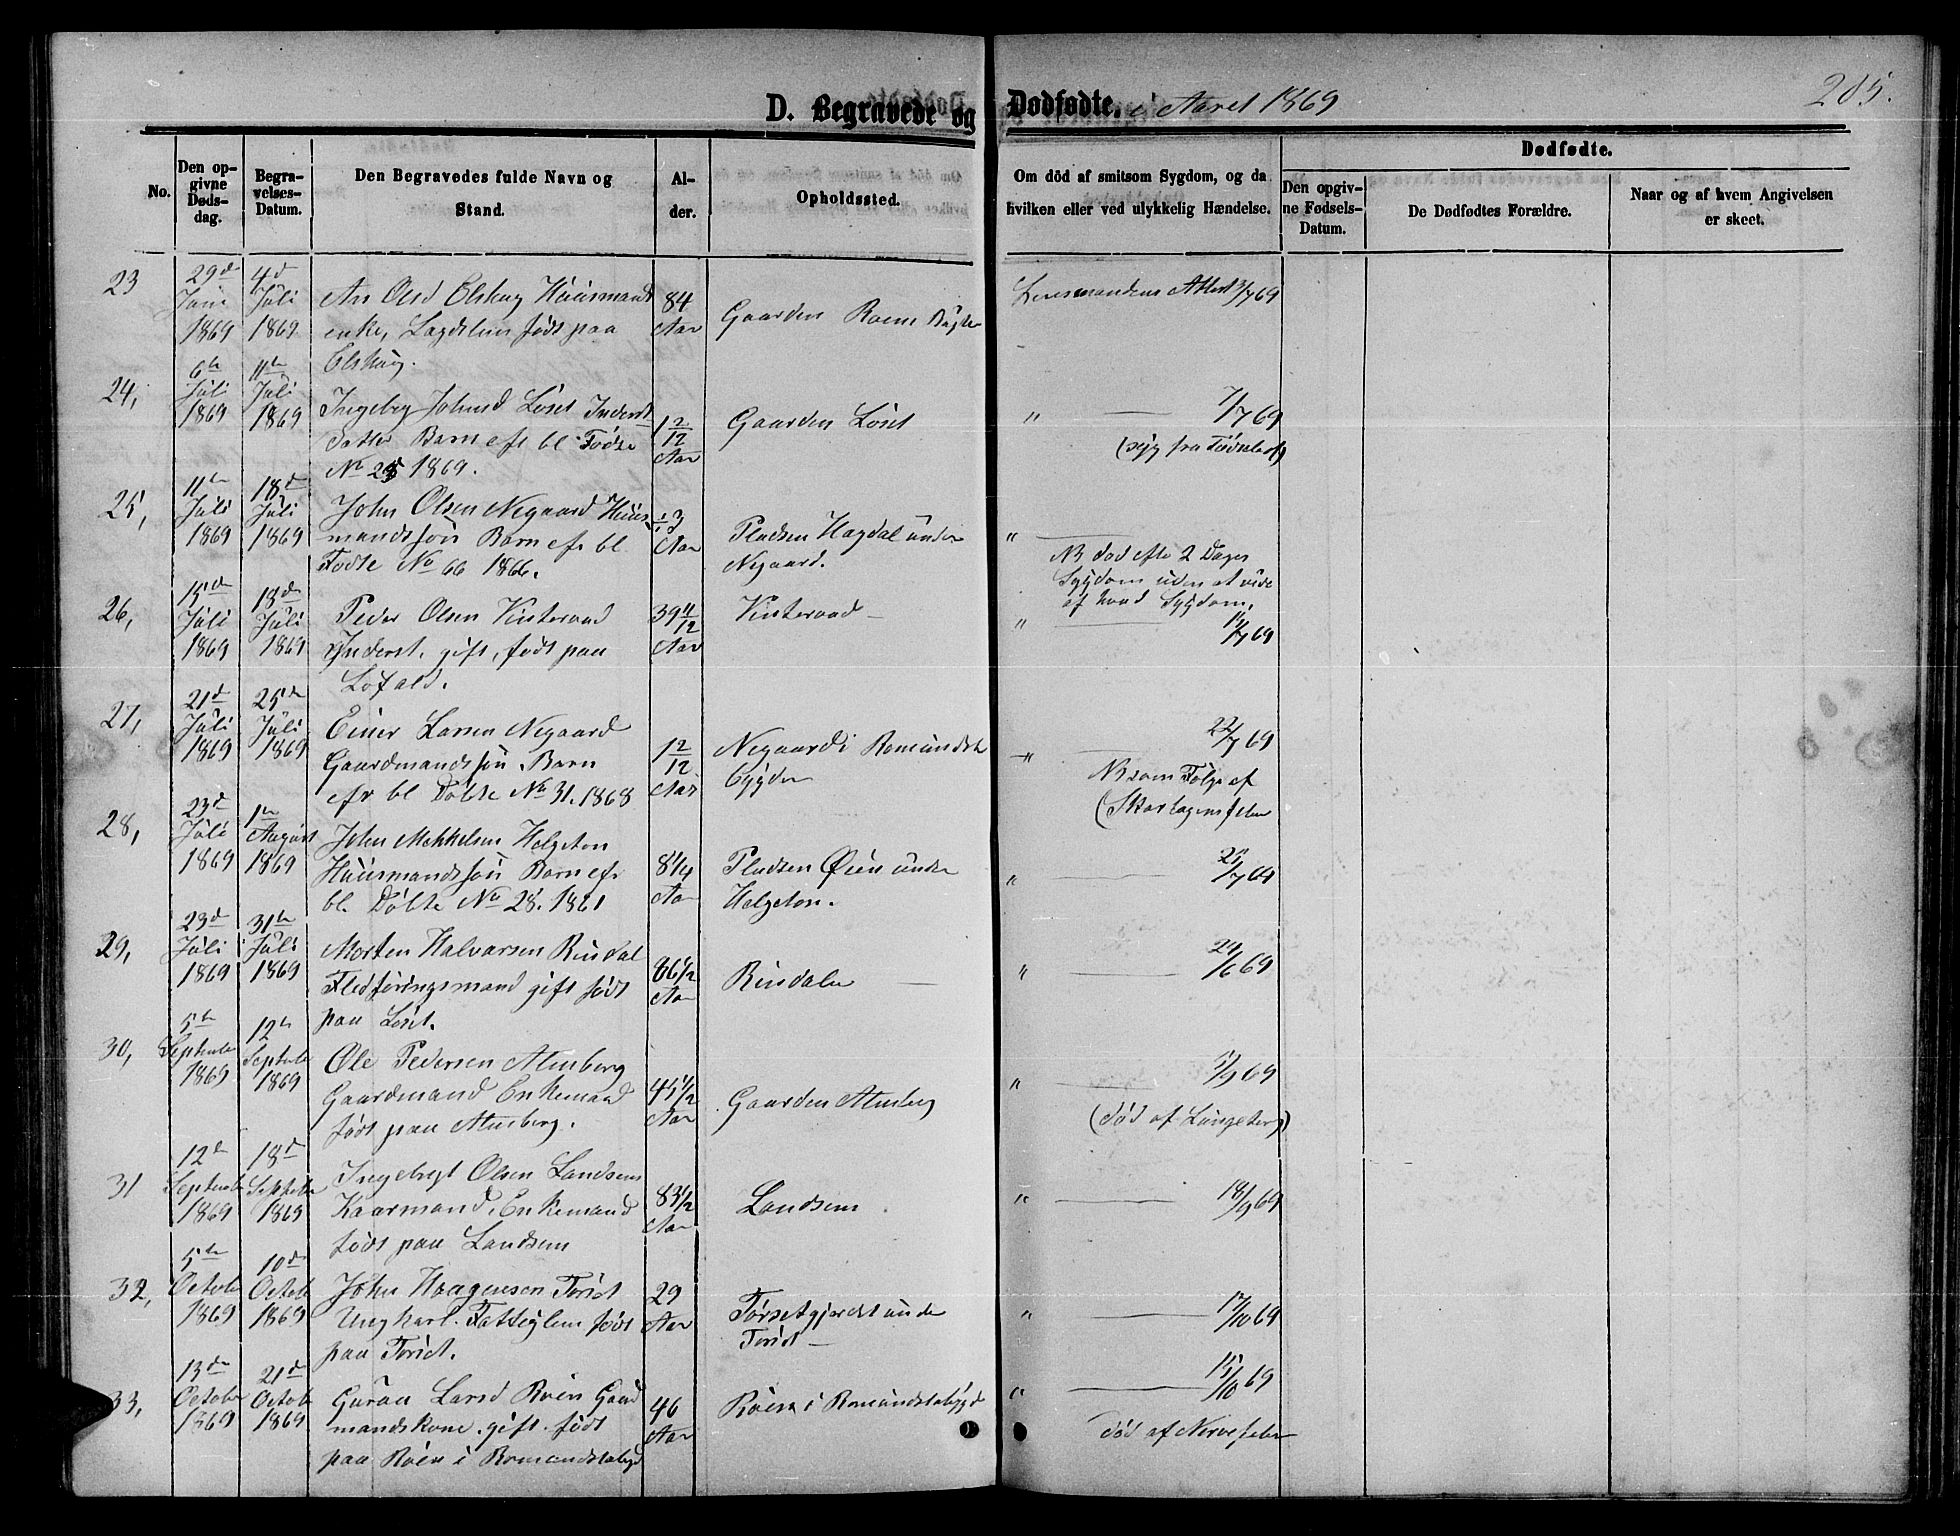 D. Begravede og Dødfødte. i Aaret 1869
205.
No.
Den opgivne Dødsdag.
Begravelses-Datum.
Den Begravedes fulde Navn og Stand.
Alder.
Opholdssted.
Om död af smitsom Sygdom, og da hvilken eller ved ulykkelig Hændelse.
Dødfødte.
Den opgivne Fødsels-Datum.
De Dødfødtes Forældre.
Naar og af hvem Angivelsen er skeet.
23
29d Juni 1869
4d Juli 1869
Ane Olsd Elshaug Huusmands
enke, født paa
Elshaug.
84 Aar
Gaarden Roen
Lensmandens Attest 3/7 69
24,
6te Juli 1869
11te Juli 1869
Ingebrg Johnsd Löset Inderst
Datter Barn efr bl Födte
No 25 1869.
Gaarden Löset
" 7/7 69
(syg fra Födselen)
25,
11te Juli 1869
18d Juli 1869
John Olsen Negaard Huus
mandssön Barn efr bl
Födte No 66 1866.
3 Aar
Pladsen Hagdal under
Negaard.
"
NB död efter 2 Dages
Sygdom uden at vide
af hvad Sygdom.
26,
15d Juli 1869
18d Juli 1869
Peder Olsen
Inderst, gift, födt paa
Löfald.
39 11/12 Aar
" 69
27,
21d Juli 1869
25de Juli 1869
Einer Larsen Negaard
Gaardmandssön. Barn
efr bl Döbte No 31. 1868
1 2/12 Aar
Negaard i Romundsta
bygden
" 22/7 69
NB som Fölge af
(Skarlagensfeber
28,
23d Juli 1869
1te August 1869
John Mekkelsen Helgeton
Huusmandssön Barn efr
bl. Döbte No 28. 1861
8 1/4 Aar
Pladsen Øien under
Helgeton.
" 25/7 69
29,
23d Juli 1869
31te Juli 1869
Morten Halvarsen Rindal
Fledföringsmand gift födt
paa Löset.
86 1/2 Aar
Rindalen
" 24/6 69
30,
5te September 1869
12te September 1869
Ole Pedersen Almberg
Gaardmand Enkemand
födt paa Almberg.
45 1/2 Aar
Gaarden Almberg
" 7/9 69
(död af Lungebet)
31
12te September 1869
18d September 1869
Ingebrigt Olsen Landsem
Kaarmand, Enkemand
födt paa Landsem
83 1/2 Aar
Landsem
" 18/9 69
32,
5te October 1869
10d October 1869
John Haagensen Törset
Ungkarl. Fattiglem födt
paa Törset.
29 Aar
Törsetgjerdet under
Törset
" 17/10 69
33,
13de October 1869
21d October 1869
Guroa Larsd Roen Gaard
mandskone. gift. födt
paa Roen i Romundstabygd
46 Aar
Roen i Romundstabygd
" 15/10 69
död af Nervefeber